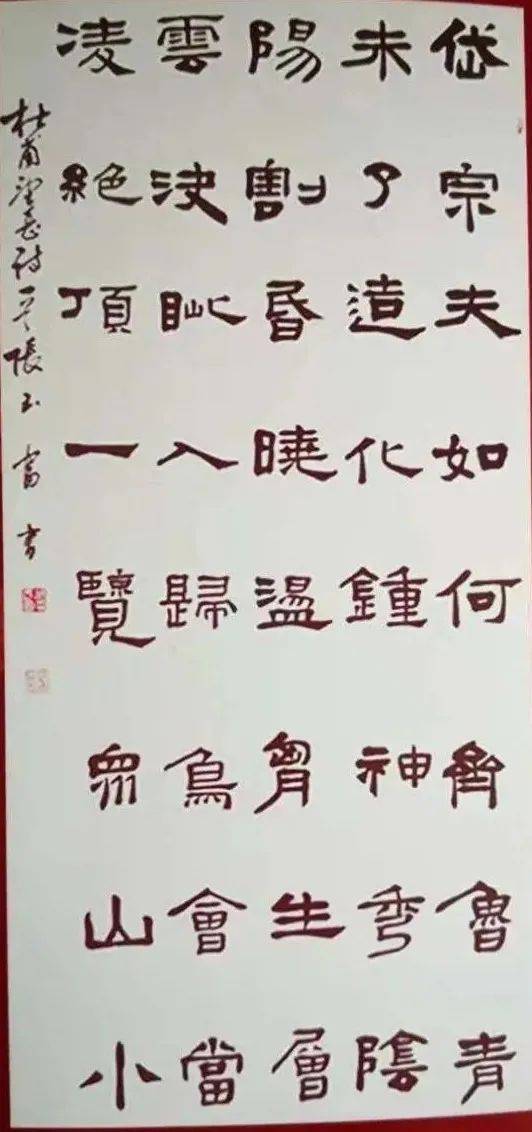 岱宗夫如何齊魯青
未了造化鍾神秀陰
陽割昏曉盪胷生層
雲決眦入歸鳥會當
凌絕頂一覽眾山小
杜甫望岳詩一首張玉富書